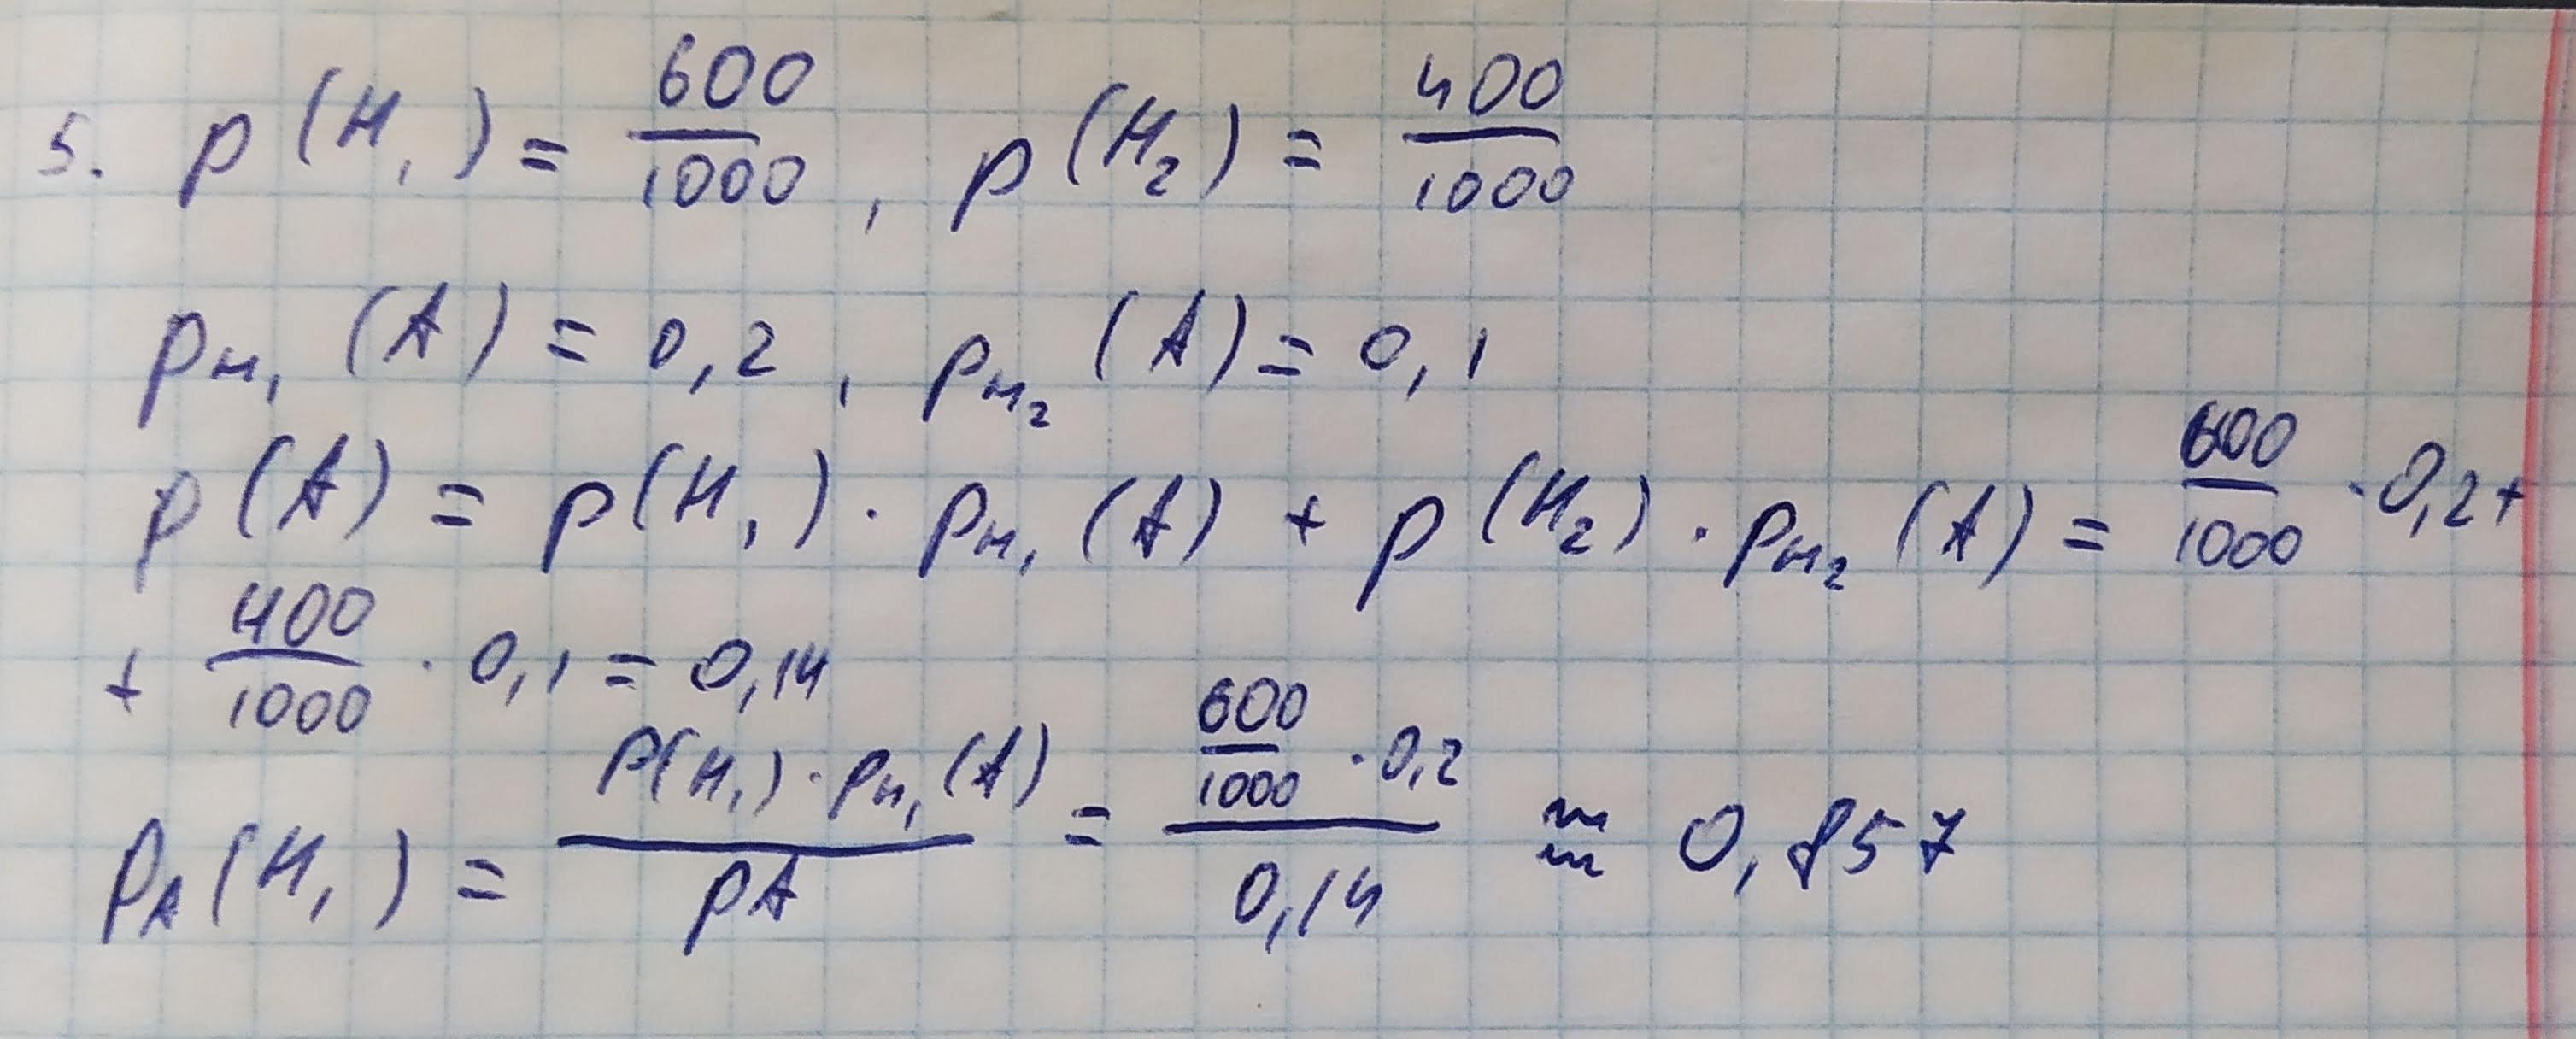 5. p(H₁) = 600/1000, p(H₂) = 400/1000
p_H₁(A) = 0,2, p_H₂(A) = 0,1
p(A) = p(H₁) · p_H₁(A) + p(H₂) · p_H₂(A) = 600/1000 · 0,2 +
+ 400/1000 · 0,1 = 0,14
p_A(H₁) = P(H₁) · p_H₁(A) / pA = 600/1000 · 0,2 / 0,14 ≈ 0,857